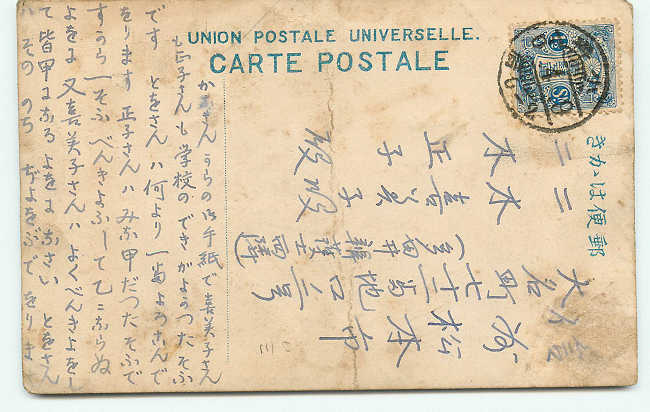 UNION POSTALE UNIVERSELLE.
CARTE POSTALE
きかは便郵
松本市
大名町七十二番地
二木喜美子
二木正子
殿殿
かあさんからの御手紙で喜美子さん
も正子さんも学校のできがよかつたそふ
です とをさんハ何より一番よろこんで
をります 正子さんハみな甲だつたそふで
すから 一そふべんきよふして乙にならぬ
よをに 又喜美子さんハよくべんきよをし
て皆甲になるよをになさい とをさん
ハそののちぢよをぶでをります